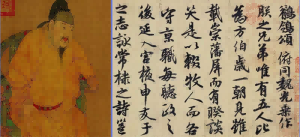 鶺鴒頌 俯同魏光乘作
朕之兄弟唯有五人比
為方伯歲一朝見雖
載崇藩屏而有睽談
笑是以輟牧人而各
守京職每聽政之
後延入宮掖申友于
之志詠棠棣之詩邕